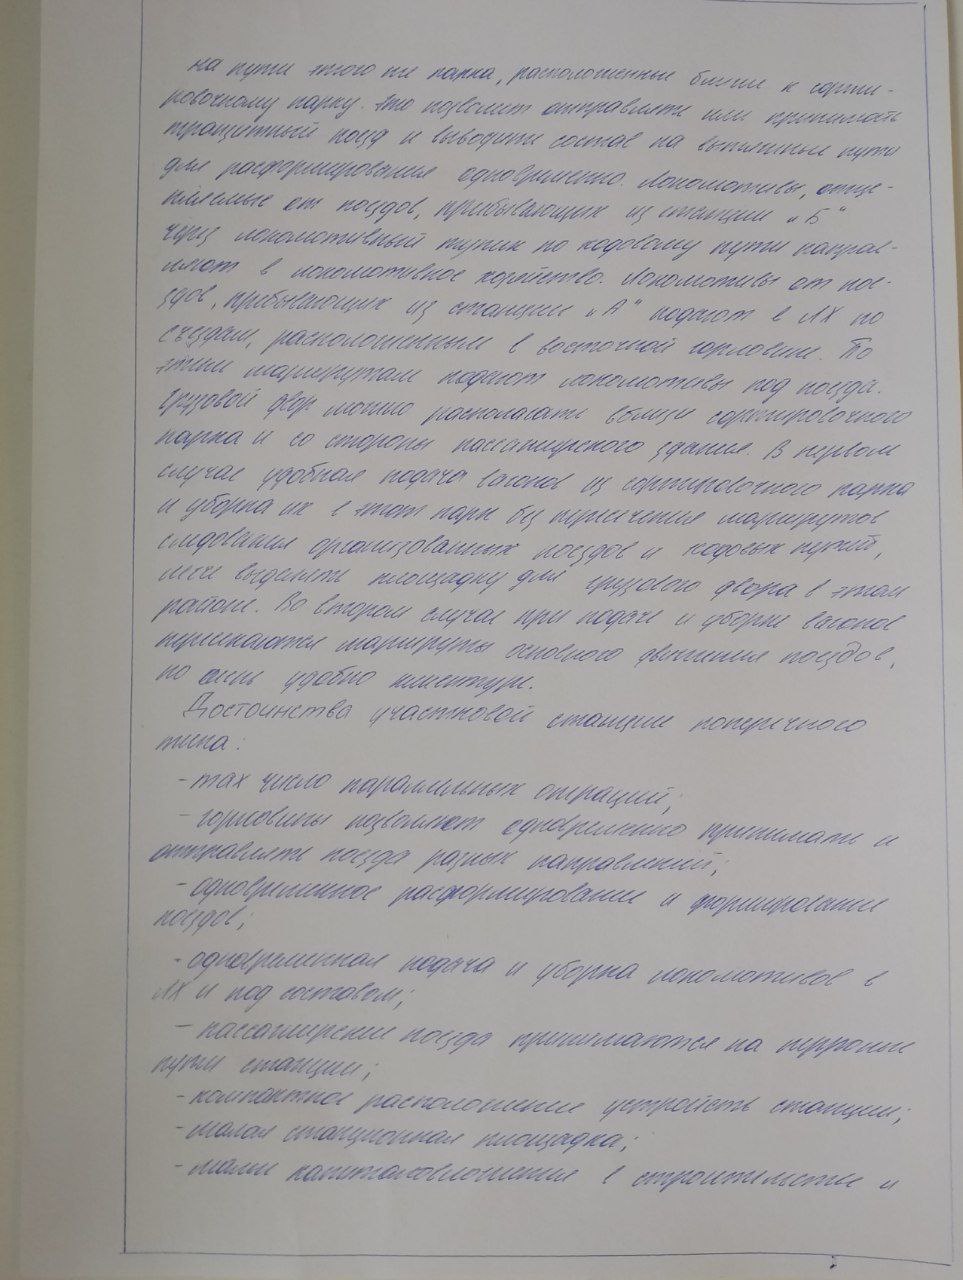 на пути этого же парка, расположенные ближе к сорти-
ровочному парку. Это позволит отправлять или принимать
транзитный поезд и выводить состав на вытяжные пути
для расформирования одновременно. Локомотивы, отце-
пляемые от поездов, прибывающих из станции "Б"
через локомотивный тупик по ходовому пути направ-
ляют в локомотивное хозяйство. Локомотивы от пое-
здов, прибывающих из станции "А" подают в ЛХ по
съездам, расположенным в восточной горловине. По
этим маршрутам подают локомотивы под поезда.
Грузовой двор можно располагать вблизи сортировочного
парка и со стороны пассажирского здания. В первом
случае удобная подача вагонов из сортировочного парка
и уборка их в этот парк без пересечения маршрутов
следования организованных поездов и ходовых путей,
легче выделять площадку для грузового двора в этом
районе. Во втором случае при подаче и уборке вагонов
пересекаются маршруты основного движения поездов,
но очень удобно клиентуре.
Достоинства участковой станции поперечного
типа:
- max число параллельных операций;
- горловины позволяют одновременно принимать и
отправлять поезда разных направлений;
- одновременное расформирование и формирование
поездов;
- одновременная подача и уборка локомотивов в
ЛХ и под составом;
- пассажирские поезда принимаются на перронные
пути станции;
- компактное расположение устройств станции;
- малая станционная площадка;
- малые капиталовложения в строительстве и